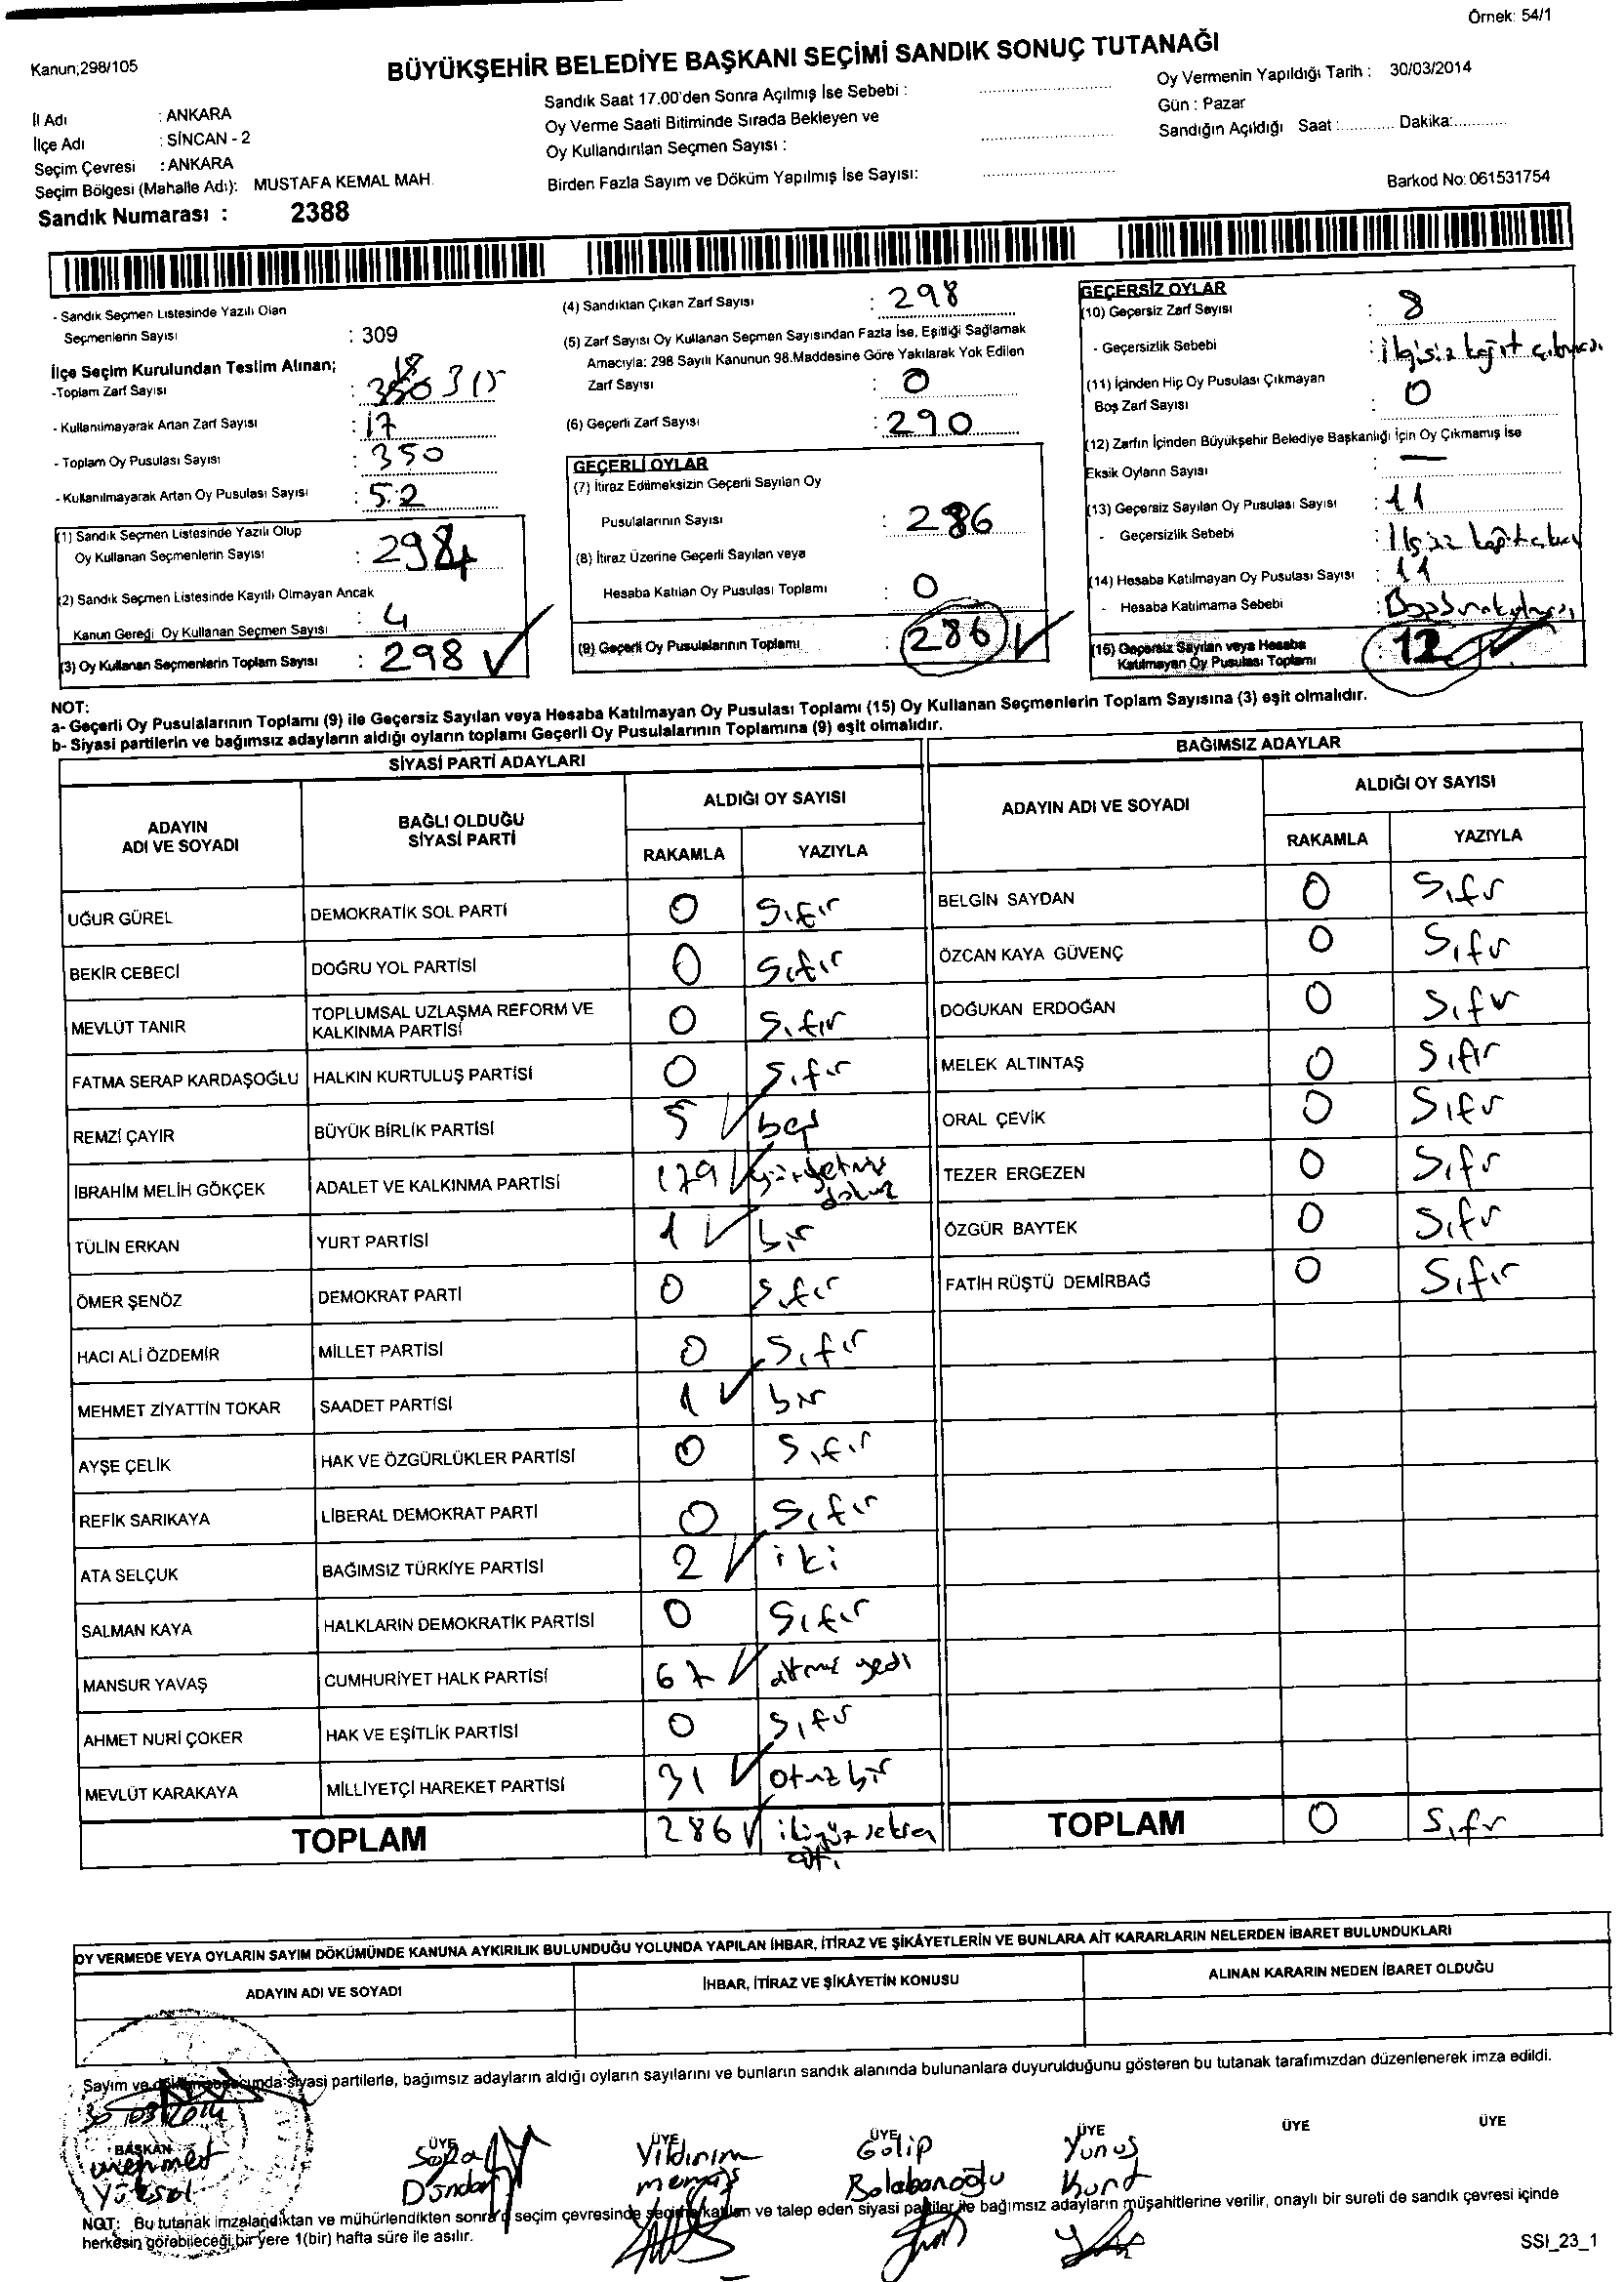 Örnek: 54/1
Kanun;298/105
BÜYÜKŞEHİR BELEDİYE BAŞKANI SEÇİMİ SANDIK SONUÇ TUTANAĞI
İl Adı : ANKARA
İlçe Adı : SİNCAN - 2
Seçim Çevresi : ANKARA
Seçim Bölgesi (Mahalle Adı): MUSTAFA KEMAL MAH.
Sandık Numarası : 2388
Sandık Saat 17.00'den Sonra Açılmış İse Sebebi :
Oy Verme Saati Bitiminde Sırada Bekleyen ve
Oy Kullandırılan Seçmen Sayısı :
Birden Fazla Sayım ve Döküm Yapılmış İse Sayısı:
Oy Vermenin Yapıldığı Tarih : 30/03/2014
Gün : Pazar
Sandığın Açıldığı Saat :............ Dakika:............
Barkod No: 061531754
- Sandık Seçmen Listesinde Yazılı Olan
Seçmenlerin Sayısı : 309
İlçe Seçim Kurulundan Teslim Alınan;
-Toplam Zarf Sayısı : 315
- Kullanılmayarak Artan Zarf Sayısı : 17
- Toplam Oy Pusulası Sayısı : 350
- Kullanılmayarak Artan Oy Pusulası Sayısı : 52
(1) Sandık Seçmen Listesinde Yazılı Olup
Oy Kullanan Seçmenlerin Sayısı : 294
(2) Sandık Seçmen Listesinde Kayıtlı Olmayan Ancak
Kanun Gereği Oy Kullanan Seçmen Sayısı : 4
(3) Oy Kullanan Seçmenlerin Toplam Sayısı : 298
(4) Sandıktan Çıkan Zarf Sayısı : 298
(5) Zarf Sayısı Oy Kullanan Seçmen Sayısından Fazla İse, Eşitliği Sağlamak
Amacıyla: 298 Sayılı Kanunun 98.Maddesine Göre Yakılarak Yok Edilen
Zarf Sayısı : 0
(6) Geçerli Zarf Sayısı : 290
GEÇERLİ OYLAR
(7) İtiraz Edilmeksizin Geçerli Sayılan Oy
Pusulalarının Sayısı : 286
(8) İtiraz Üzerine Geçerli Sayılan veya
Hesaba Katılan Oy Pusulası Toplamı : 0
(9) Geçerli Oy Pusulalarının Toplamı : 286
GEÇERSİZ OYLAR
(10) Geçersiz Zarf Sayısı : 8
- Geçersizlik Sebebi : ilgisiz kağıt çıkması
(11) İçinden Hiç Oy Pusulası Çıkmayan
Boş Zarf Sayısı : 0
(12) Zarfın İçinden Büyükşehir Belediye Başkanlığı İçin Oy Çıkmamış İse
Eksik Oyların Sayısı : —
(13) Geçersiz Sayılan Oy Pusulası Sayısı : 11
- Geçersizlik Sebebi :
(14) Hesaba Katılmayan Oy Pusulası Sayısı : 11
- Hesaba Katılmama Sebebi :
(15) Geçersiz Sayılan veya Hesaba
Katılmayan Oy Pusulası Toplamı : 12
NOT:
a- Geçerli Oy Pusulalarının Toplamı (9) ile Geçersiz Sayılan veya Hesaba Katılmayan Oy Pusulası Toplamı (15) Oy Kullanan Seçmenlerin Toplam Sayısına (3) eşit olmalıdır.
b- Siyasi partilerin ve bağımsız adayların aldığı oyların toplamı Geçerli Oy Pusulalarının Toplamına (9) eşit olmalıdır.
SİYASİ PARTİ ADAYLARI
ADAYIN ADI VE SOYADI BAĞLI OLDUĞU SİYASİ PARTİ ALDIĞI OY SAYISI
RAKAMLA YAZIYLA
UĞUR GÜREL DEMOKRATİK SOL PARTİ 0 Sıfır
BEKİR CEBECİ DOĞRU YOL PARTİSİ 0 Sıfır
MEVLÜT TANIR TOPLUMSAL UZLAŞMA REFORM VE KALKINMA PARTİSİ 0 Sıfır
FATMA SERAP KARDAŞOĞLU HALKIN KURTULUŞ PARTİSİ 0 Sıfır
REMZİ ÇAYIR BÜYÜK BİRLİK PARTİSİ 5 beş
İBRAHİM MELİH GÖKÇEK ADALET VE KALKINMA PARTİSİ 179 yüzyetmiş dokuz
TÜLİN ERKAN YURT PARTİSİ 1 bir
ÖMER ŞENÖZ DEMOKRAT PARTİ 0 Sıfır
HACI ALİ ÖZDEMİR MİLLET PARTİSİ 0 Sıfır
MEHMET ZİYATTİN TOKAR SAADET PARTİSİ 1 bir
AYŞE ÇELİK HAK VE ÖZGÜRLÜKLER PARTİSİ 0 Sıfır
REFİK SARIKAYA LİBERAL DEMOKRAT PARTİ 0 Sıfır
ATA SELÇUK BAĞIMSIZ TÜRKİYE PARTİSİ 2 iki
SALMAN KAYA HALKLARIN DEMOKRATİK PARTİSİ 0 Sıfır
MANSUR YAVAŞ CUMHURİYET HALK PARTİSİ 67 altmış yedi
AHMET NURİ ÇOKER HAK VE EŞİTLİK PARTİSİ 0 Sıfır
MEVLÜT KARAKAYA MİLLİYETÇİ HAREKET PARTİSİ 31 Otuz bir
TOPLAM 286 ikiyüz seksen altı
BAĞIMSIZ ADAYLAR
ADAYIN ADI VE SOYADI ALDIĞI OY SAYISI
RAKAMLA YAZIYLA
BELGİN SAYDAN 0 Sıfır
ÖZCAN KAYA GÜVENÇ 0 Sıfır
DOĞUKAN ERDOĞAN 0 Sıfır
MELEK ALTINTAŞ 0 Sıfır
ORAL ÇEVİK 0 Sıfır
TEZER ERGEZEN 0 Sıfır
ÖZGÜR BAYTEK 0 Sıfır
FATİH RÜŞTÜ DEMİRBAĞ 0 Sıfır
TOPLAM 0 Sıfır
OY VERMEDE VEYA OYLARIN SAYIM DÖKÜMÜNDE KANUNA AYKIRILIK BULUNDUĞU YOLUNDA YAPILAN İHBAR, İTİRAZ VE ŞİKÂYETLERİN VE BUNLARA AİT KARARLARIN NELERDEN İBARET BULUNDUKLARI
ADAYIN ADI VE SOYADI İHBAR, İTİRAZ VE ŞİKÂYETİN KONUSU ALINAN KARARIN NEDEN İBARET OLDUĞU
Sayım ve siyasi partilerle, bağımsız adayların aldığı oyların sayılarını ve bunların sandık alanında bulunanlara duyurulduğunu gösteren bu tutanak tarafımızdan düzenlenerek imza edildi.
30/03/2014
BAŞKAN ÜYE ÜYE ÜYE ÜYE ÜYE ÜYE
Mehmet Yıldırım Galip Yunus
Yüksel Dündar Balabanoğlu Kurt
NOT: Bu tutanak imzalandıktan ve mühürlendikten sonra seçim çevresinde seçime katılan ve talep eden siyasi partiler ile bağımsız adayların müşahitlerine verilir, onaylı bir sureti de sandık çevresi içinde
herkesin görebileceği bir yere 1(bir) hafta süre ile asılır.
SSI_23_1